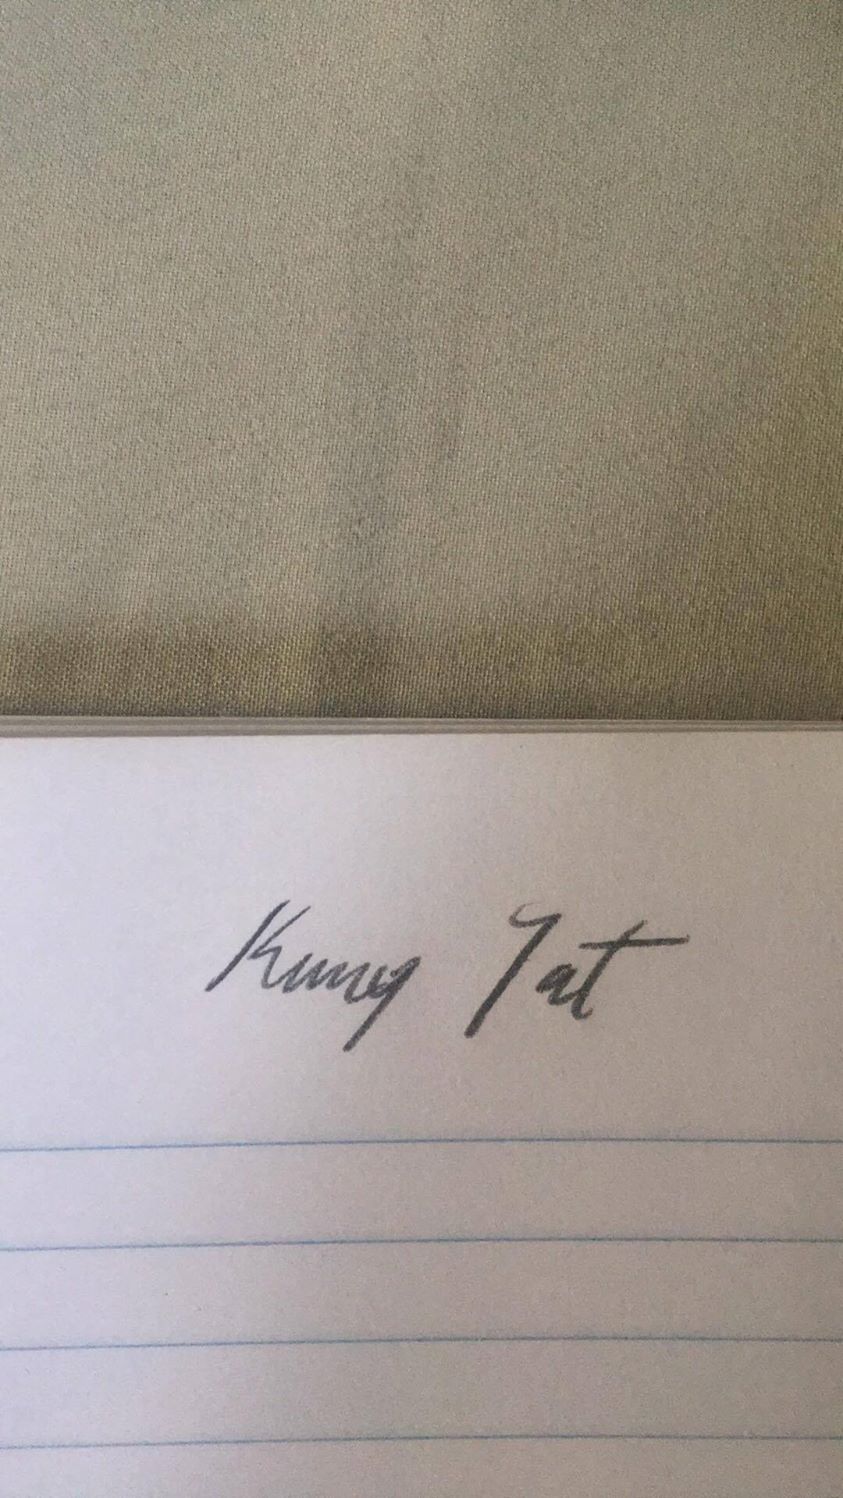 Kung Tat